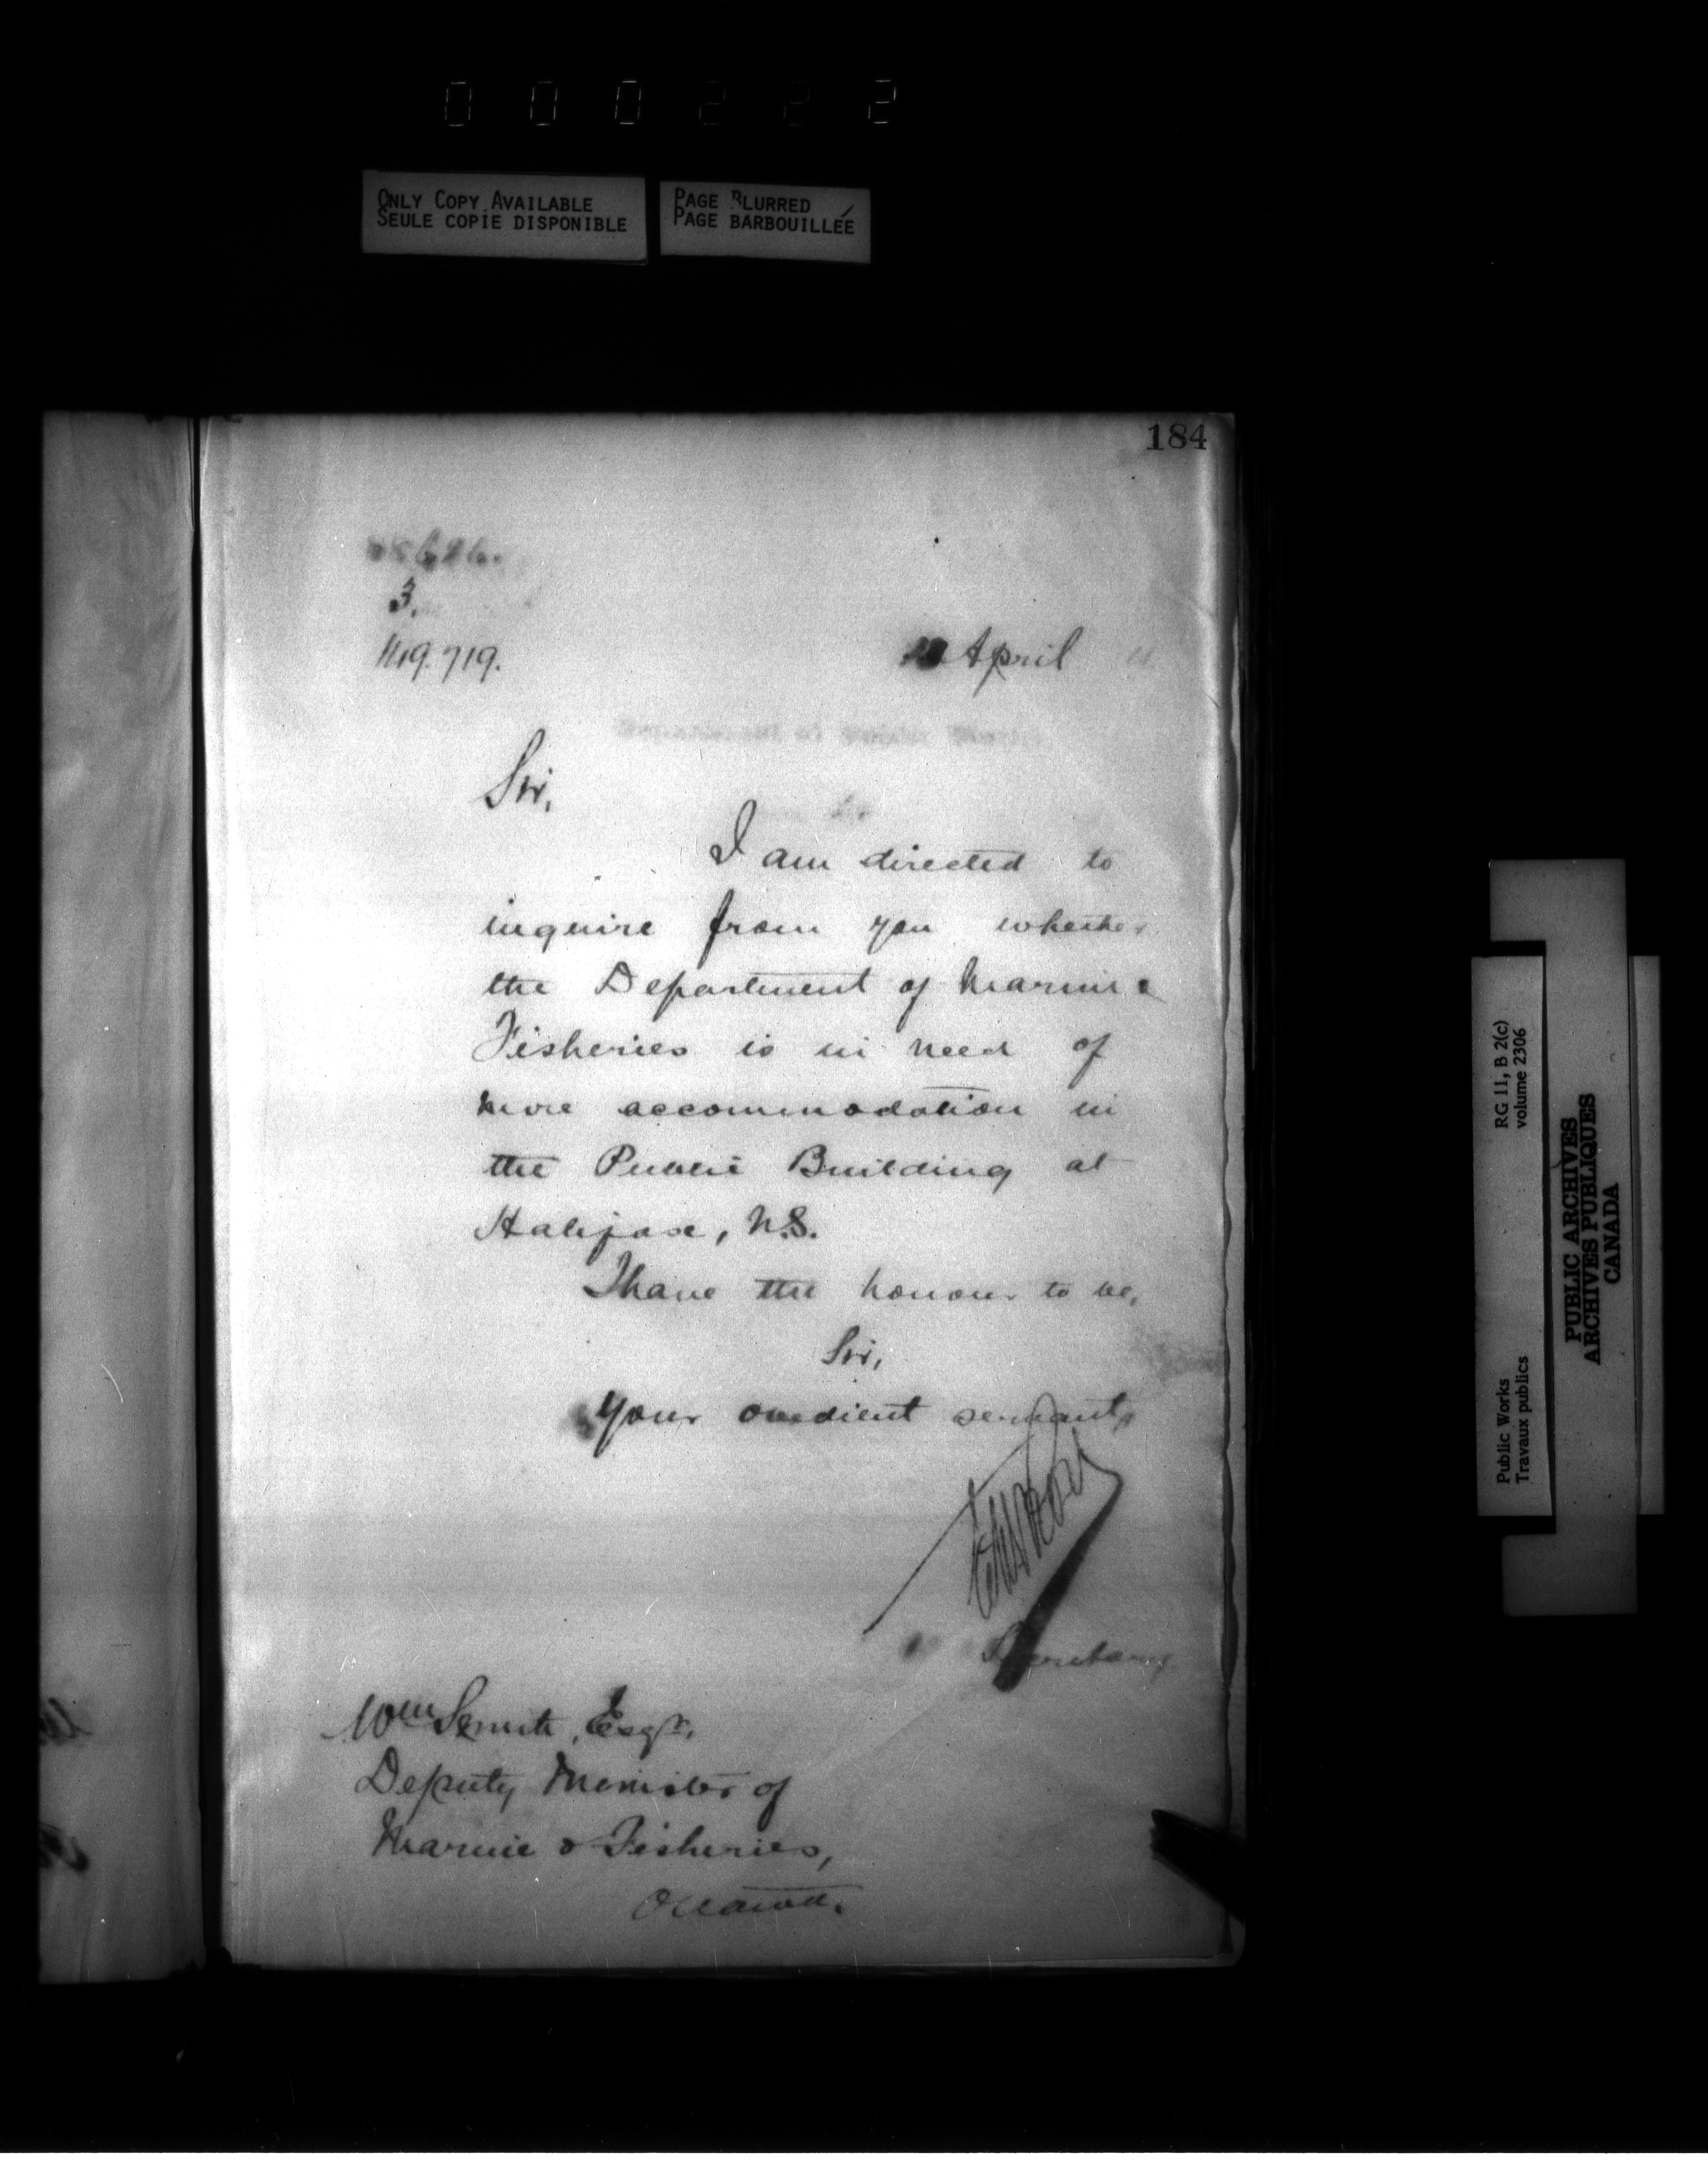 000222
ONLY COPY AVAILABLE
SEULE COPIE DISPONIBLE
PAGE BLURRED
PAGE BARBOUILLÉE
184
3.
119.719.
April
Sir,
I am directed to
inquire from you whether
the Department of Marine &
Fisheries is in need of
more accommodation in
the Public Building at
Halifax, N.S.
I have the honour to be,
Sir,
Your obedient servant,
Secretary
Wm Smith, Esqr.
Deputy Minister of
Marine & Fisheries,
Ottawa.
RG 11, B 2(c)
volume 2306
Public Works
Travaux publics
PUBLIC ARCHIVES
ARCHIVES PUBLIQUES
CANADA